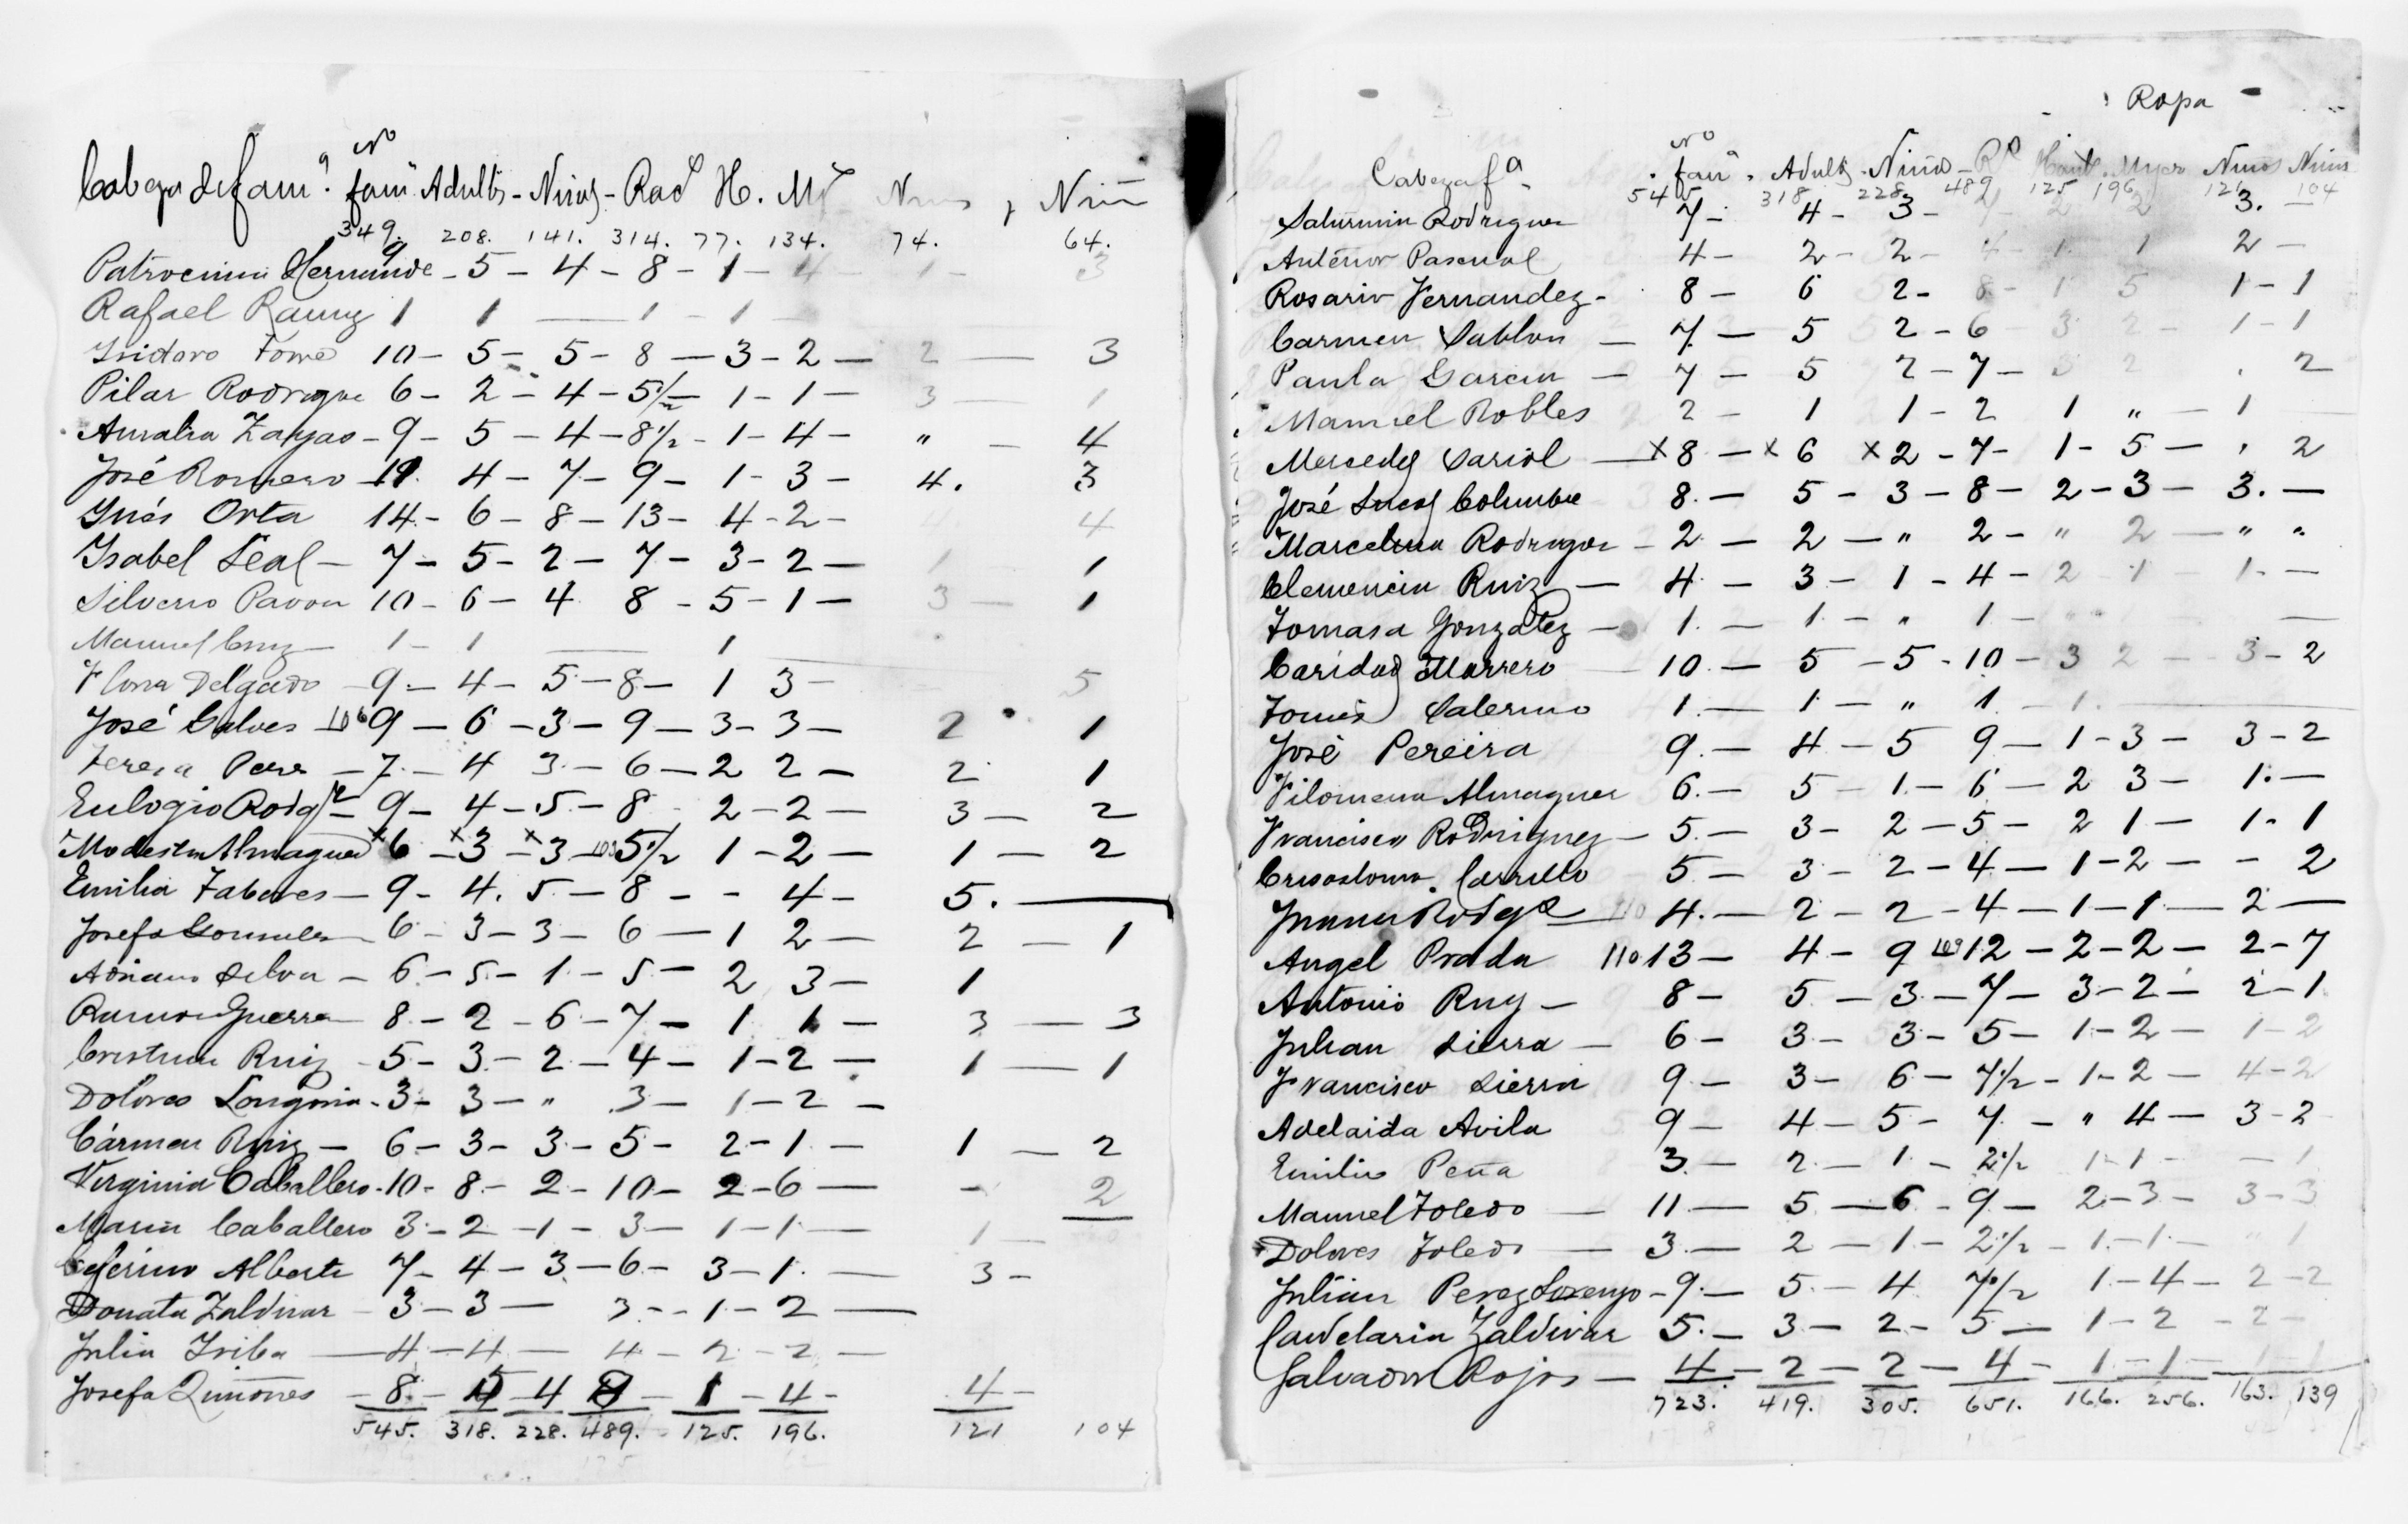 Cabeza de fam.ª Nº fam.ª Adultos - Niños - Rac.s H. M.s Niños, Niñ
349. 208. 141. 314. 77. 134. 74. 64.
Patrocinia Hernande 9 - 5 - 4 - 8 - 1 - 4 1 - 3
Rafael Ramz 1 1 — 1 - 1 —
Isidoro Tomé 10 - 5 - 5 - 8 — 3 - 2 — 2 — 3
Pilar Rodrigue 6 - 2 - 4 - 5½ - 1 - 1 — 3 — 1
Amalia Zayas - 9 - 5 - 4 - 8½ - 1 - 4 - " — 4
José Romero - 11. 4 - 7 - 9 - 1 - 3 - 4. 3
Ynés Orta 14 - 6 - 8 - 13 - 4 - 2 - 4 4
Ysabel Leal - 7 - 5 - 2 - 7 - 3 - 2 — 1 1
Silverio Pavon 10 - 6 - 4 8 - 5 - 1 — 3 — 1
Manuel Cruz — 1 - 1 — 1 —
Flora Delgado - 9 - 4 - 5 - 8 - 1 3 - 5
José Galves 106 9 - 6 - 3 - 9 - 3 - 3 - 2 1
Teresa Pere - 7. - 4 3. - 6 - 2 2 - 2 1
Eulogio Rodgz - 9 - 4 - 5 - 8 - 2 - 2 — 3 — 2
Modesta Almaguer x6 - x3 - x3 - 5½ 1 - 2 — 1 — 2
Emilia Tabares - 9 - 4. 5 - 8 - - 4 - 5. —
Josefa Gonzales - 6 - 3 - 3 - 6 — 1 2 — 2 — 1
Adriano Silva - 6 - 5 - 1 - 5 - 2 3 - 1
Ramon Guerra - 8 - 2 - 6 - 7 - 1 1 - 3 — 3
Cristina Ruiz - 5 - 3 - 2 - 4 - 1 - 2 — 1 — 1
Dolores Longoria - 3 - 3 - " 3 - 1 - 2 -
Cármen Ruiz - 6 - 3 - 3 - 5 - 2 - 1 - 1 — 2
Virginia Caballero - 10 - 8 - 2 - 10 - 2 - 6 — - 2
Maria Caballero 3 - 2 - 1 - 3 - 1 - 1 — 1 —
Ceferino Alberte 7 - 4 - 3 - 6 - 3 - 1. — 3 -
Donata Zaldivar - 3 - 3 — 3 - - 1 - 2 —
Julia Iriba — 4 - 4 — 4 - 2 - 2 —
Josefa Quiñones - 8 - 4 - 4 8 - 1 - 4 - 4 -
545. 318. 228. 489. 125. 196. 121 104
Ropa
Cabeza f.ª Nº fam.ª Adults. Niños - R.º Homb. Mujer Niños Niñas
545 318 228 489 125 196 121 104
Saturnin Rodriguez 7 - 4 - 3 - 7 - 2 2 3. —
Antenor Pascual 4 - 2 - 2 - 4 - 1. 1 2 —
Rosario Fernandez - 8 - 6 2 - 8 - 1 5 1 - 1
Carmen Sablon — 7 - 5 2 - 6 3 2 - 1 - 1
Paula Garcia — 7 - 5 2 - 7 - 3 2 . 2
Manuel Robles 2 - 1 1 - 2 1 " - 1
Mercedes Sariol — x8 - x6 x2 - 7 - 1 - 5 - . 2
José Lucas Columbie 8. - 5 - 3 - 8 - 2 - 3 - 3. —
Marcelina Rodriguez - 2 - 2 - " 2 - " 2 — " "
Clemencia Ruiz — 4. - 3 - 1 - 4 - 2 - 1 - 1. —
Tomasa Gonzalez — 1. - 1. - " 1 - " —
Caridad Marrero 10. - 5 - 5 - 10 - 3 2 - 3 - 2
Tomás Salermo 1. - 1. - " 1 - 1. —
José Pereira 9. - 4 - 5 9 - 1 - 3 - 3 - 2
Filomena Almaguer 6. - 5 - 1. - 6 - 2 3 - 1. -
Francisco Rodriguez - 5. - 3 - 2 - 5 - 2 1 - 1. 1
Crisostomo Carrillo 5 - 3 - 2 - 4 - 1 - 2 - - 2
Juana Rodgz — 110 4. - 2 - 2 - 4 - 1 - 1 - 2 —
Angel Prada 110 13 - 4 - 9 109 12 - 2 - 2 - 2 - 7
Antonio Ruy — 8 - 5 - 3 - 7 - 3 - 2 - 2 - 1
Julian Sierra — 6 - 3 - 3 - 5 - 1 - 2 - 1 - 2
Francisco Sierra 9 - 3 - 6 - 7½ - 1 - 2 - 4 - 2
Adelaida Avila 9 - 4 - 5 - 7. - " 4 - 3 - 2
Emilio Peña 3. - 2. - 1. - 2½ 1 - 1 - - 1
Manuel Toledo — 11 - 5 - 6 - 9 - 2 - 3 - 3 - 3
Dolores Toledo — 3. - 2 - 1 - 2½ - 1 - 1 - " 1
Julian Perez Lorenzo - 9. - 5. - 4 7½ 1 - 4 - 2 - 2
Candelaria Zaldivar 5. - 3 - 2 - 5 — 1 - 2 - 2 -
Salvador Rojas — 4 - 2 - 2 - 4 - 1 - 1 - 1 - 1
723. 419. 305. 651. 166. 256. 163. 139